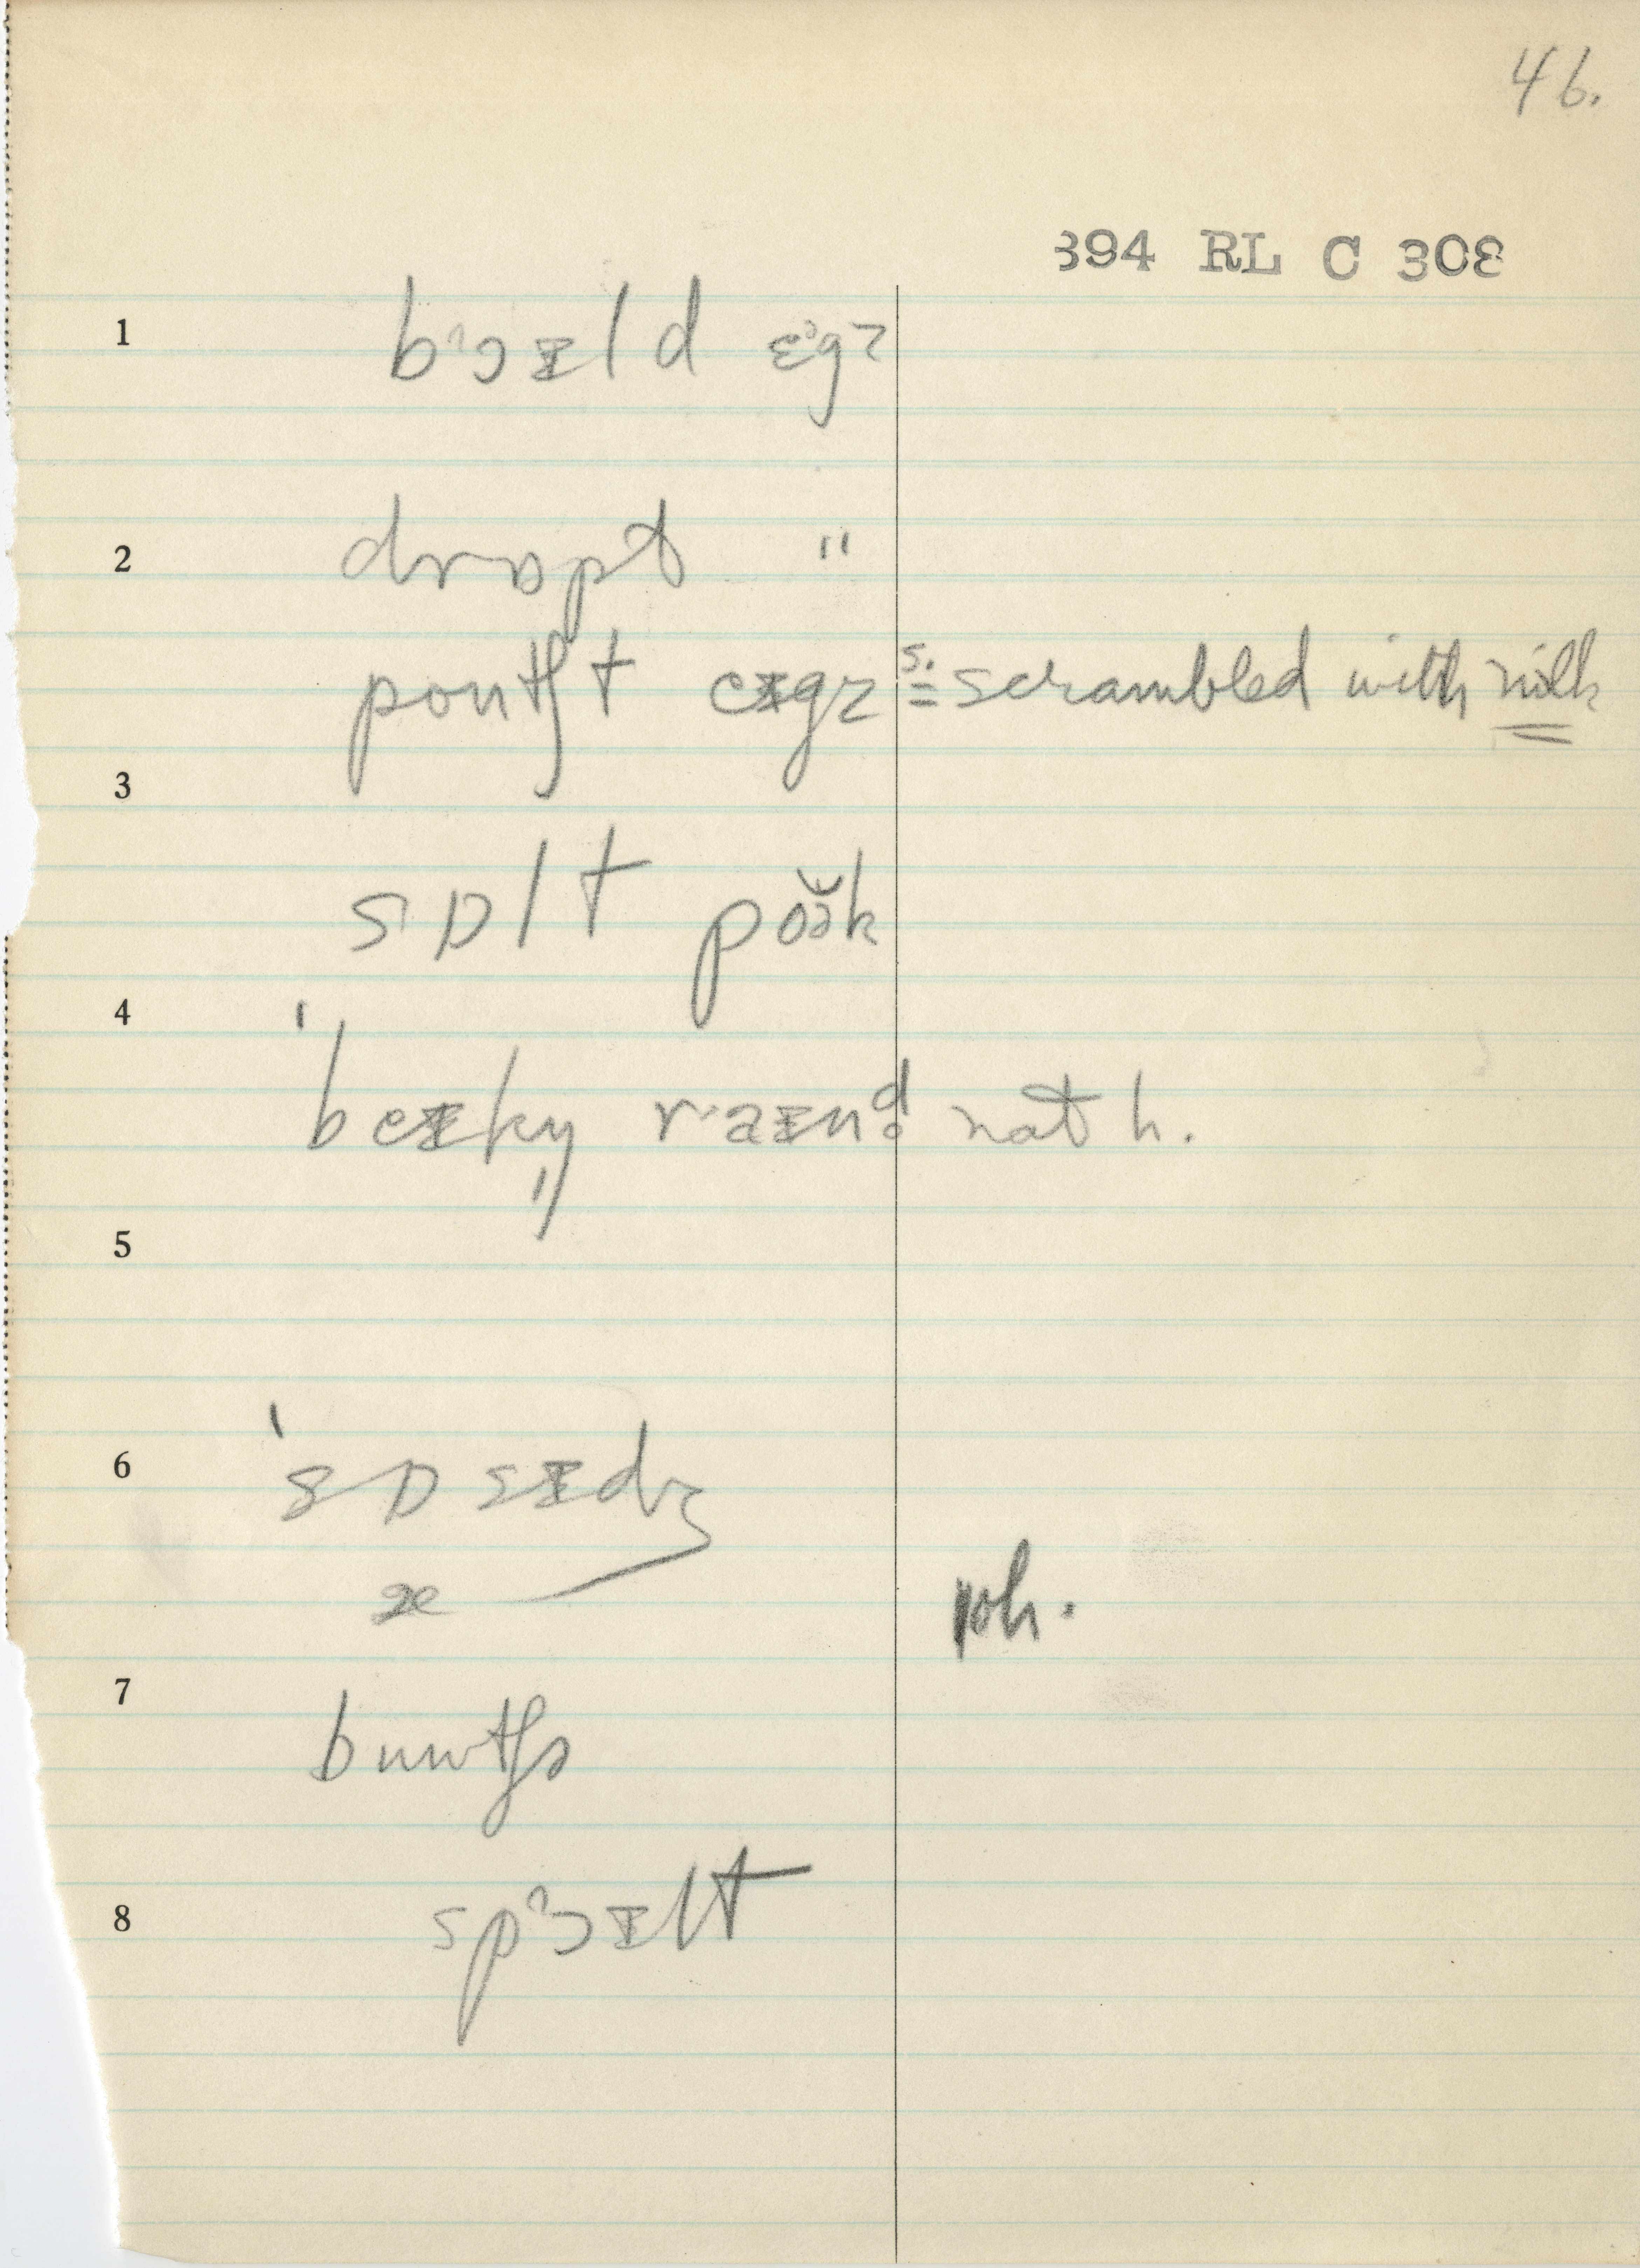 46.
394 RL C 308
1 bɔɪld ɛgz
2 drɒpt "
poutʃt eɪgz s. = scrambled with milk
3
sɒlt poə̆k
4
ˈbeɪkŋ raɪnd not h.
5
6 ˈsɒsɪdʒ
noh.
7
8 spɔɪlt